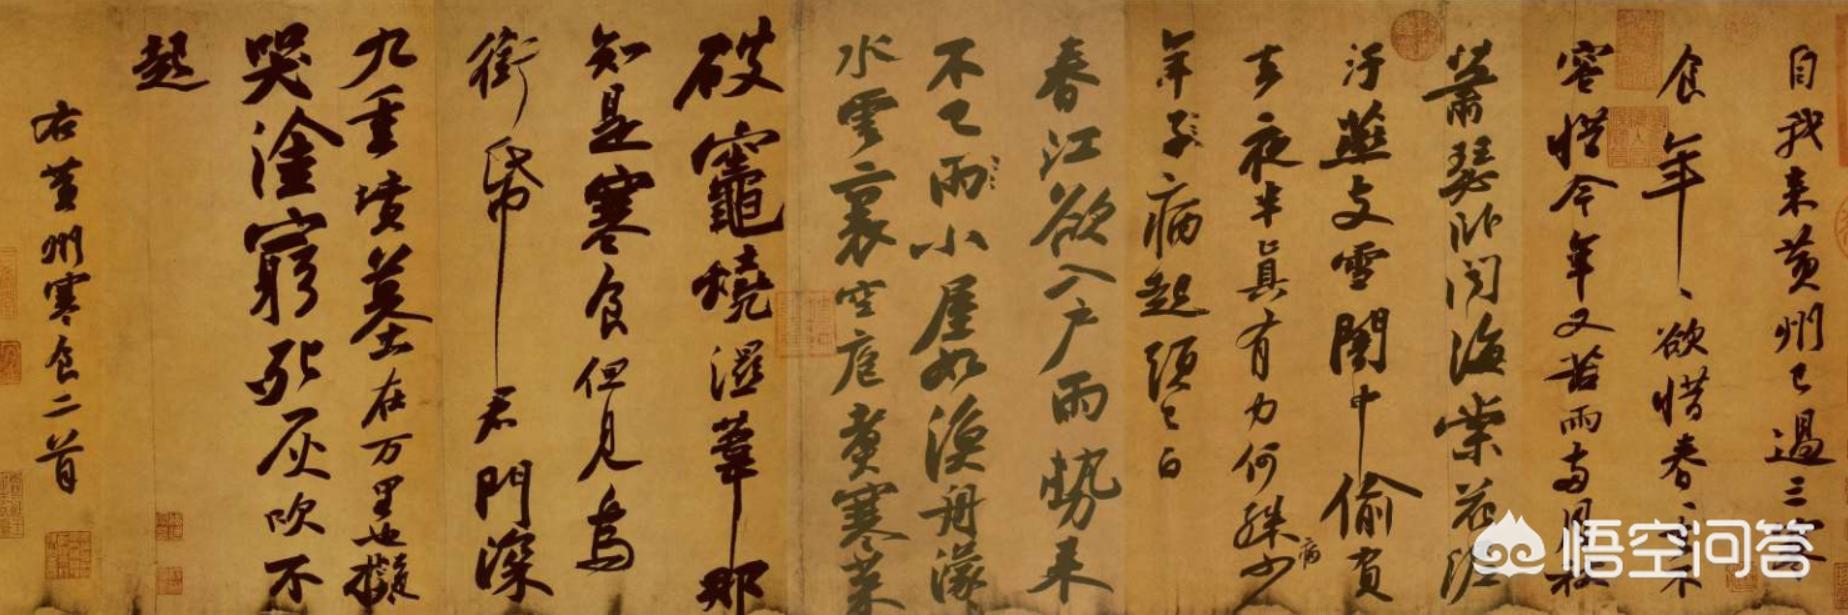 自我来黄州已過三寒
食年〻欲惜春〻去不
容惜今年又苦雨兩月秋
蕭瑟卧聞海棠花泥
汙燕支雪闇中偷負
去夜半真有力何殊少
病
年子病起頭已白
春江欲入戶雨勢来
不已雨小屋如漁舟濛〻
水雲裏空庖煮寒菜
破竈燒濕葦那
知是寒食但見烏
銜帋君門深
九重墳墓在万里也擬
哭塗窮死灰吹不
起
右黄州寒食二首
悟空问答